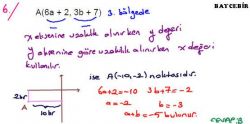 BAYCEBİR
6/ A(6a + 2, 3b + 7) 3. bölgede
x eksenine uzaklık alınırken y değeri
y eksenine göre uzaklık alınırken x değeri
kullanılır.
ise A(-10, -2) noktasıdır.
2br
A
6a+2=-10 3b+7=-2
a=-2 b=-3
a+b=-5 bulunur.
CEVAP:B